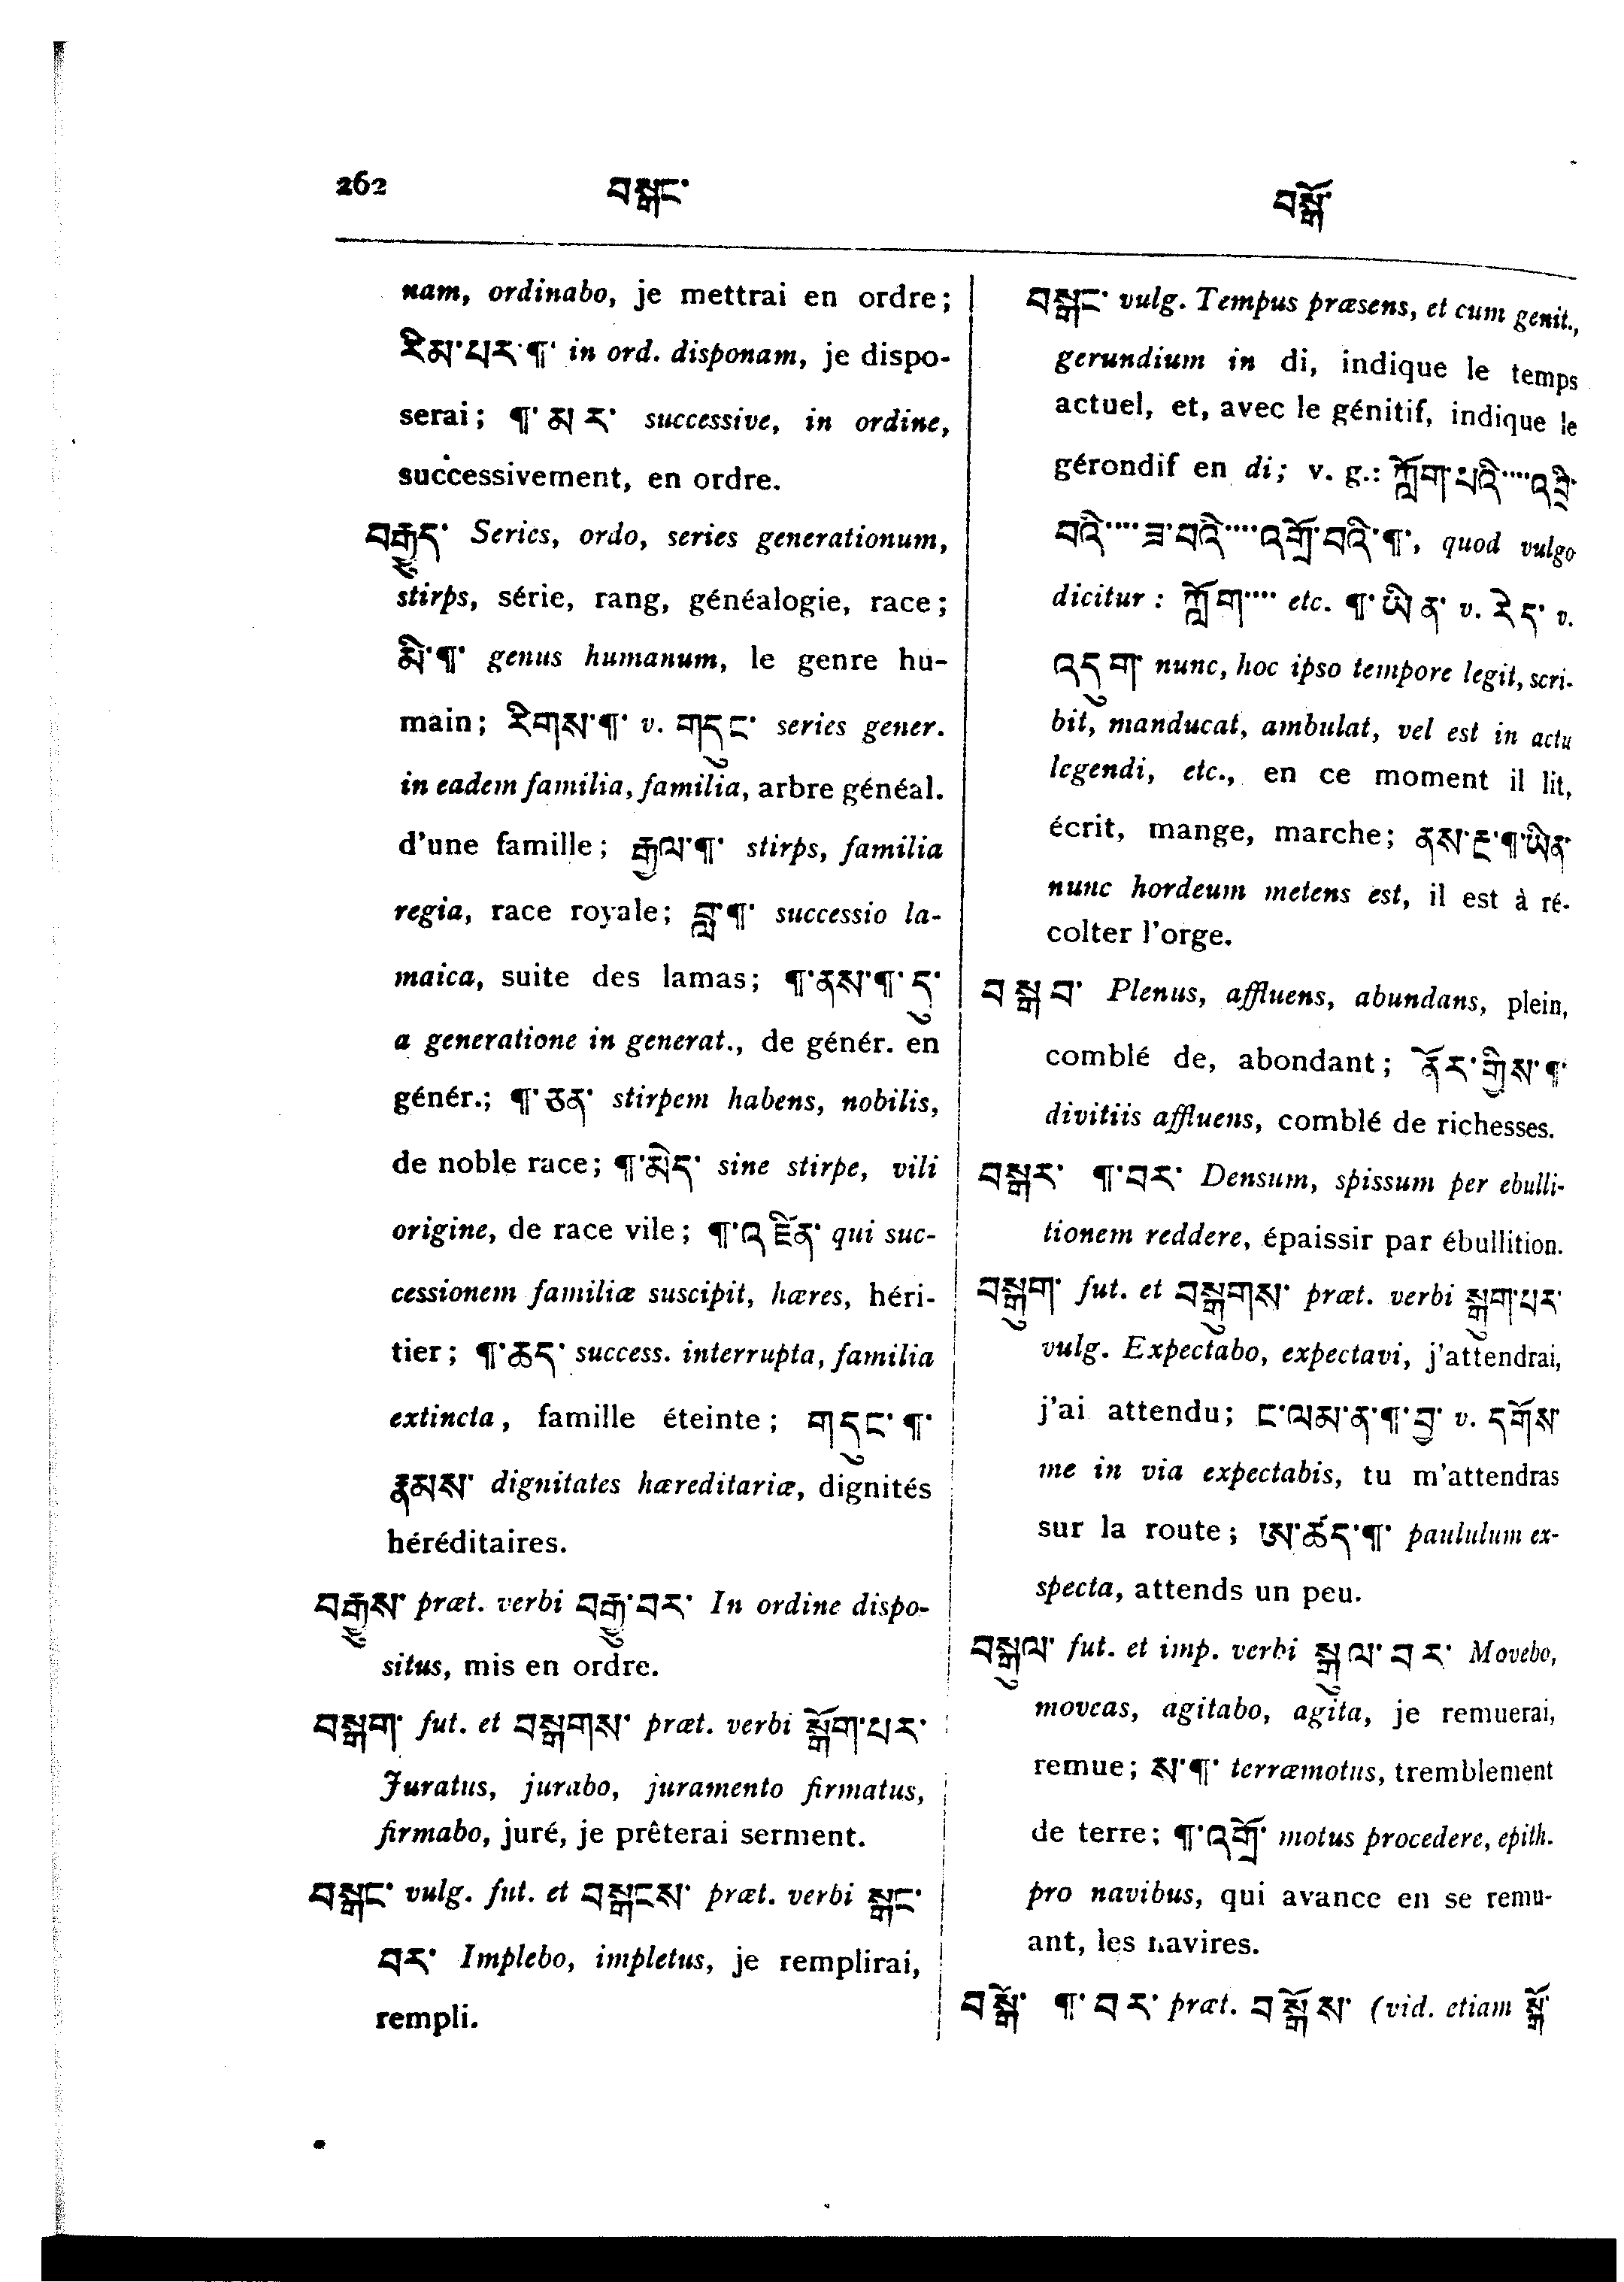 262 བསྒང་ བསྒོ་
nam, ordinabo, je mettrai en ordre;
རིམ་པར་¶་ in ord. disponam, je dispo-
serai; ¶་མར་ successive, in ordine,
successivement, en ordre.
བརྒྱུད་ Series, ordo, series generationum,
stirps, série, rang, généalogie, race;
མི་¶་ genus humanum, le genre hu-
main; རིགས་¶་ v. གདུང་ series gener.
in eadem familia, familia, arbre généal.
d'une famille; རྒྱལ་¶་ stirps, familia
regia, race royale; བླ་¶་ successio la-
maica, suite des lamas; ¶་ནས་¶་དུ་
a generatione in generat., de génér. en
génér.; ¶་ཅན་ stirpem habens, nobilis,
de noble race; ¶་མེད་ sine stirpe, vili
origine, de race vile; ¶་འཛིན་ qui suc-
cessionem familiæ suscipit, hæres, héri-
tier; ¶་ཆད་ success. interrupta, familia
extincta, famille éteinte; གདུང་¶་
རྣམས་ dignitates hæreditariæ, dignités
héréditaires.
བརྒྱུས་ præt. verbi བརྒྱུ་བར་ In ordine dispo-
situs, mis en ordre.
བསྒག་ fut. et བསྒགས་ præt. verbi སྒོག་པར་
Juratus, jurabo, juramento firmatus,
firmabo, juré, je prêterai serment.
བསྒང་ vulg. fut. et བསྒངས་ præt. verbi སྒང་
བར་ Implebo, impletus, je remplirai,
rempli.
བསྒང་ vulg. Tempus præsens, et cum genit.,
gerundium in di, indique le temps
actuel, et, avec le génitif, indique le
gérondif en di; v. g.: ཀློག་པའི་····འབྲི་
བའི་····ཟ་བའི་····འགྲོ་བའི་¶་, quod vulgo
dicitur: ཀློག་···· etc. ¶་ཡིན་ v. རེད་ v.
འདུག་ nunc, hoc ipso tempore legit, scri-
bit, manducat, ambulat, vel est in actu
legendi, etc., en ce moment il lit,
écrit, mange, marche; ནས་རྔ་¶་ཡིན་
nunc hordeum metens est, il est à ré-
colter l'orge.
བསྒབ་ Plenus, affluens, abundans, plein,
comblé de, abondant; ནོར་གྱིས་¶་
divitiis affluens, comblé de richesses.
བསྒར་ ¶་བར་ Densum, spissum per ebulli-
tionem reddere, épaissir par ébullition.
བསྒུག་ fut. et བསྒུགས་ præt. verbi སྒུག་པར་
vulg. Expectabo, expectavi, j'attendrai,
j'ai attendu; ང་ལམ་ན་¶་བྱ་ v. དགོས་
me in via expectabis, tu m'attendras
sur la route; ཨ་ཚོད་¶་ paululum ex-
specta, attends un peu.
བསྒུལ་ fut. et imp. verbi སྒུལ་བར་ Movebo,
moveas, agitabo, agita, je remuerai,
remue; ས་¶་ terræmotus, tremblement
de terre; ¶་འགྲོ་ motus procedere, epith.
pro navibus, qui avance en se remu-
ant, les navires.
བསྒོ་ ¶་བར་ præt. བསྒོས་ (vid. etiam སྒོ་